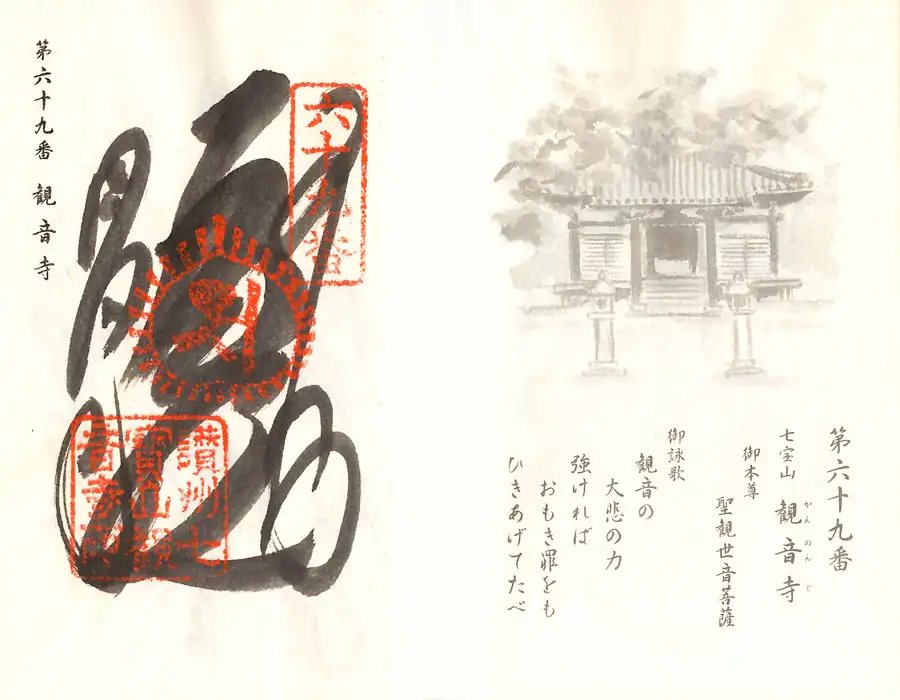 第六十九番
七宝山 観音寺
かんのんじ
御本尊
聖観世音菩薩
御詠歌
観音の
大悲の力
強ければ
おもき罪をも
ひきあげてたべ
六十九番
讃州七
寶山観
音寺印
第六十九番 観音寺